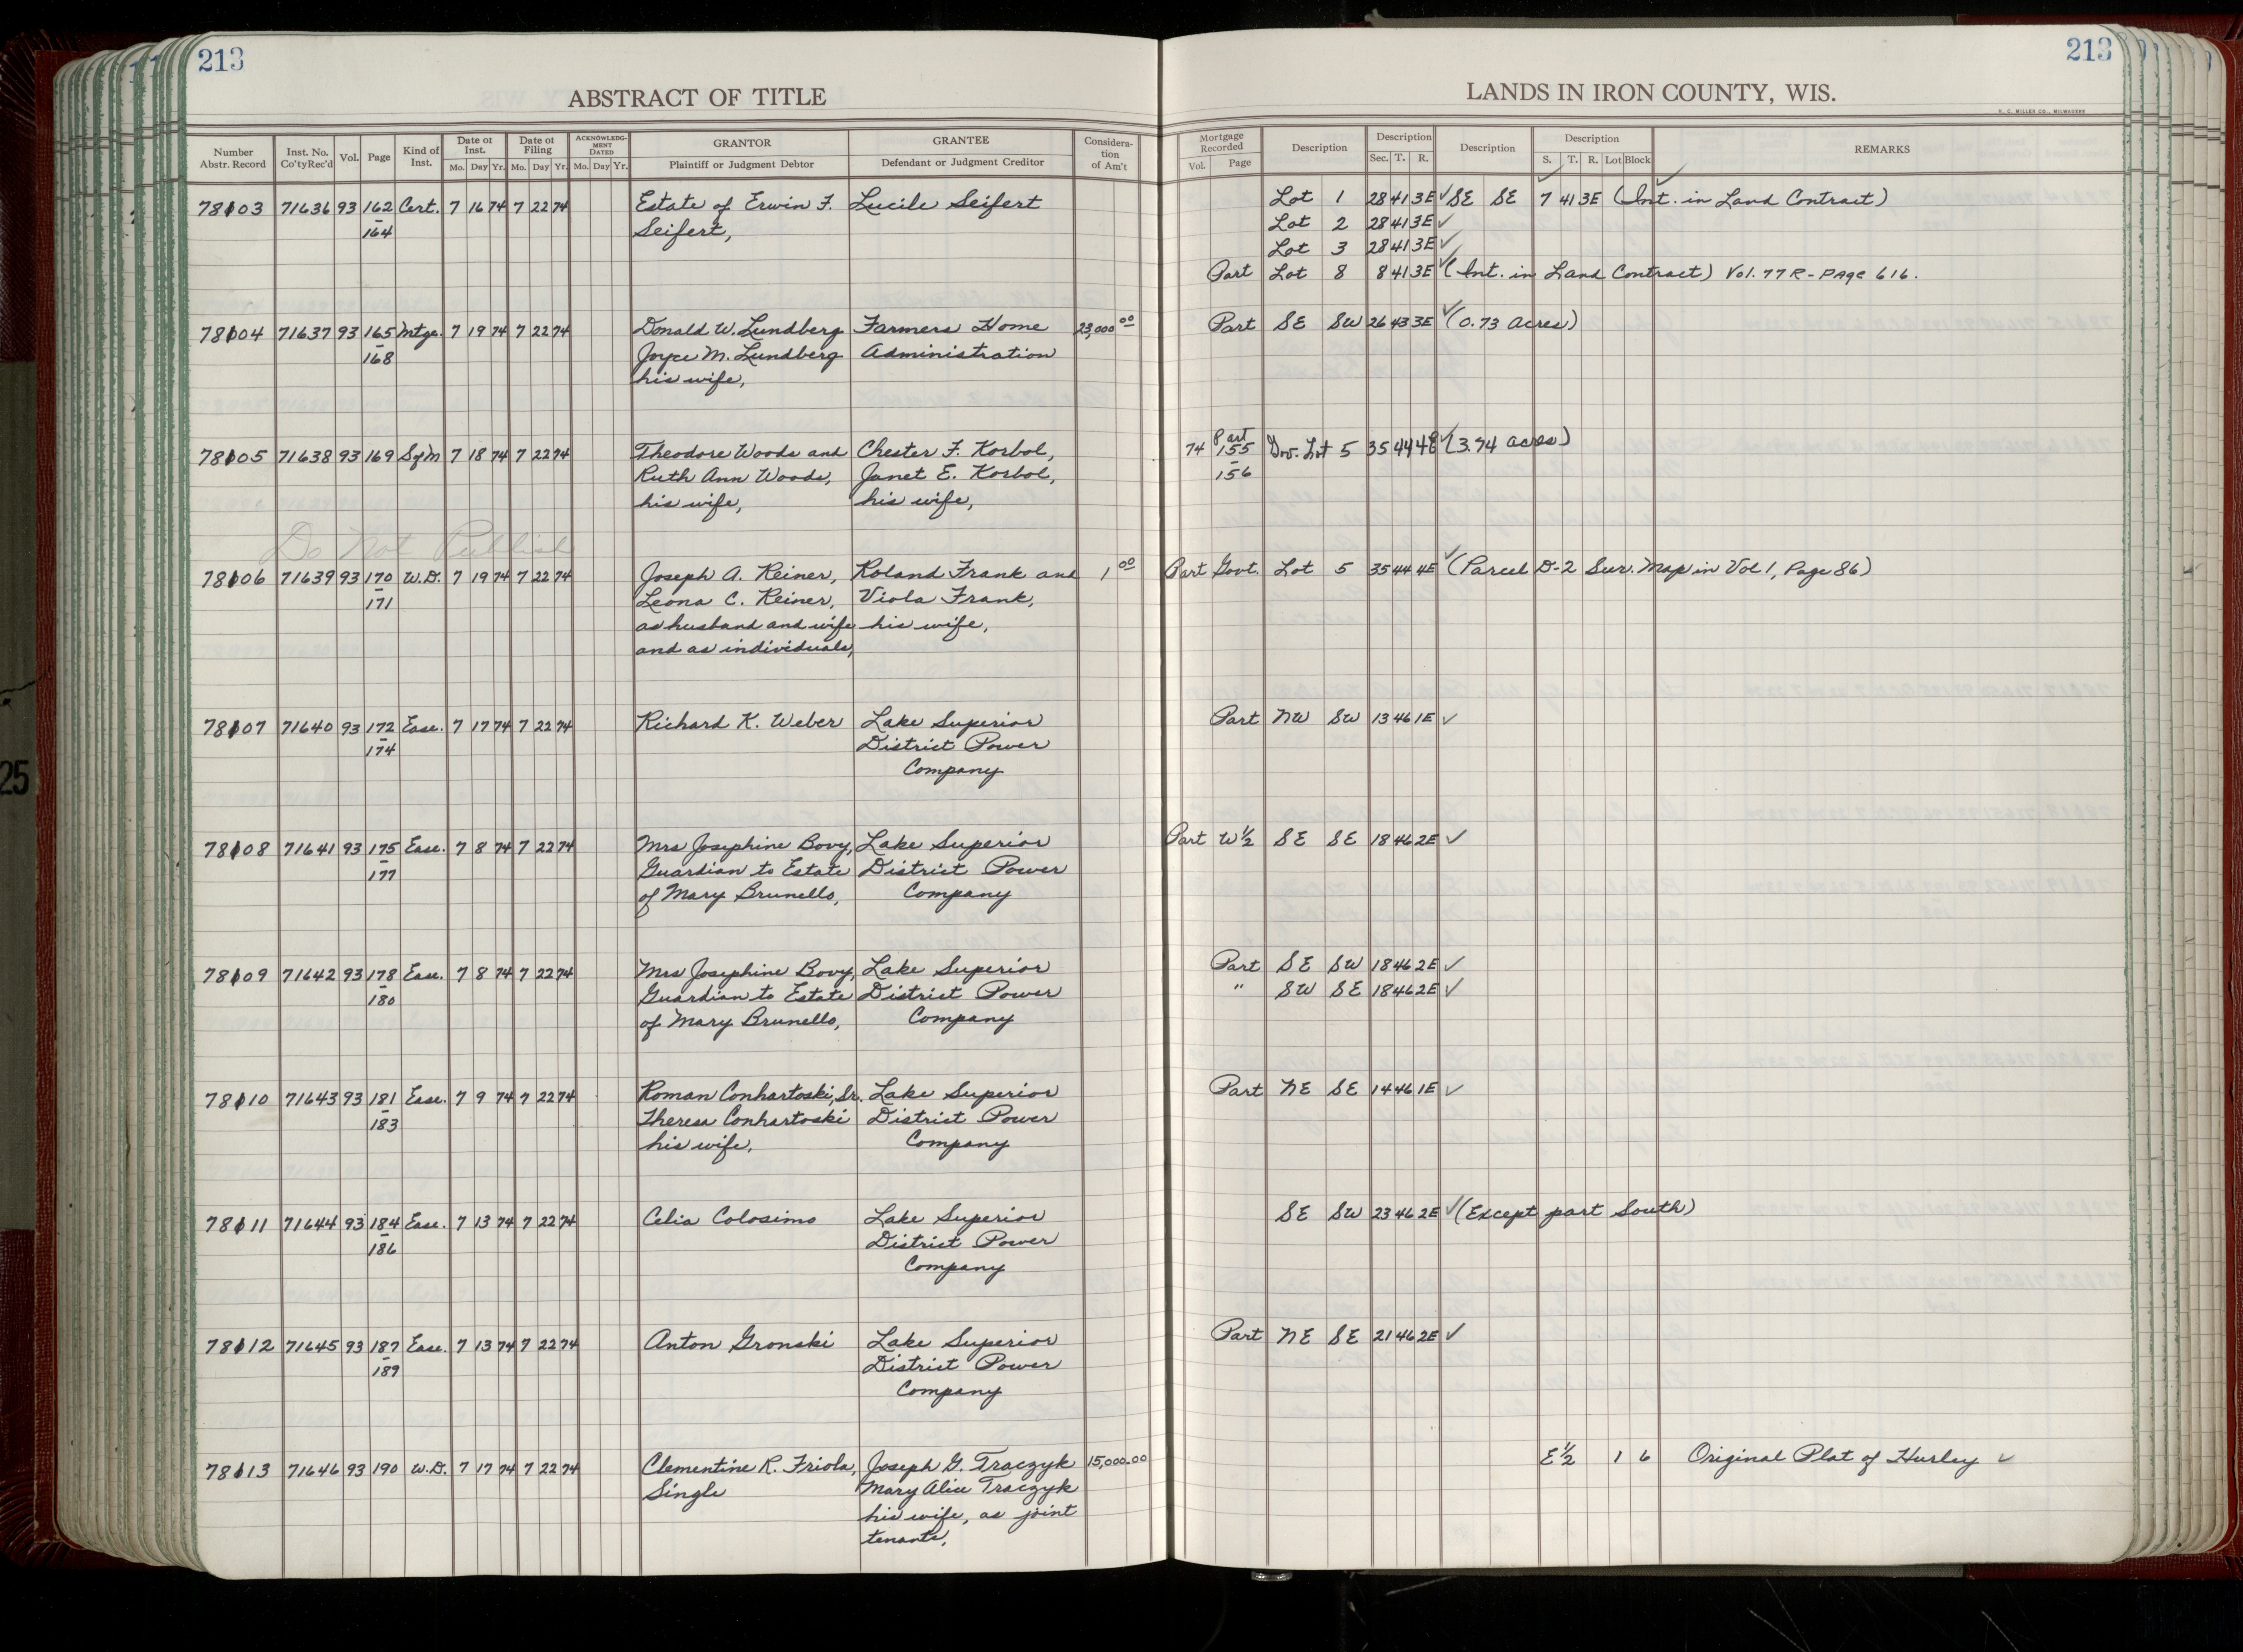 213
213
ABSTRACT OF TITLE
LANDS IN IRON COUNTY, WIS.
H. C. MILLER CO., MILWAUKEE
Number Abstr. Record Inst. No. Co'tyRec'd Vol. Page Kind of Inst. Date of Inst. Mo. Day Yr. Date of Filing Mo. Day Yr. ACKNOWLEDGMENT DATED Mo. Day Yr. GRANTOR Plaintiff or Judgment Debtor GRANTEE Defendant or Judgment Creditor Consideration of Am't
Mortgage Recorded Vol. Page Description Description Sec. T. R. Description Description S. T. R. Lot Block REMARKS
78103 71636 93 162 Cert. 7 16 74 7 22 74 Estate of Erwin F. Lucile Seifert Lot 1 28 41 3E ✓ SE SE 7 41 3E (Int. in Land Contract)
- 164 Seifert, Lot 2 28 41 3E ✓
Lot 3 28 41 3E ✓
Part Lot 8 8 41 3E ✓ (Int. in Land Contract) Vol. 77 R - Page 616.
78104 71637 93 165 Mtge. 7 19 74 7 22 74 Donald W. Lundberg Farmers Home 23,000 00 Part SE SW 26 43 3E ✓ (0.73 acres)
- 168 Joyce M. Lundberg Administration
his wife,
78105 71638 93 169 SfM 7 18 74 7 22 74 Theodore Woods and Chester F. Korbol, 74 Part 155 Gov. Lot 5 35 44 4E ✓ (3.74 acres)
Ruth Ann Woods, Janet E. Korbol, - 156
his wife, his wife,
Do Not Publish
78106 71639 93 170 W.D. 7 19 74 7 22 74 Joseph A. Reiner, Roland Frank and 1 00 Part Govt. Lot 5 35 44 4E ✓ (Parcel D-2 Sur. Map in Vol 1, Page 86)
- 171 Leona C. Reiner, Viola Frank,
as husband and wife his wife,
and as individuals,
78107 71640 93 172 Ease. 7 17 74 7 22 74 Richard K. Weber Lake Superior Part NW SW 13 46 1E ✓
- 174 District Power
Company
78108 71641 93 175 Ease. 7 8 74 7 22 74 Mrs Josephine Bovy, Lake Superior Part W ½ SE SE 18 46 2E ✓
- 177 Guardian to Estate District Power
of Mary Brunello, Company
78109 71642 93 178 Ease. 7 8 74 7 22 74 Mrs Josephine Bovy, Lake Superior Part SE SW 18 46 2E ✓
- 180 Guardian to Estate District Power " SW SE 18 46 2E ✓
of Mary Brunello, Company
78110 71643 93 181 Ease. 7 9 74 7 22 74 Roman Conhartoski, Sr. Lake Superior Part NE SE 14 46 1E ✓
- 183 Theresa Conhartoski District Power
his wife, Company
78111 71644 93 184 Ease. 7 13 74 7 22 74 Celia Colosimo Lake Superior SE SW 23 46 2E ✓ (Except part South)
- 186 District Power
Company
78112 71645 93 187 Ease. 7 13 74 7 22 74 Anton Gronski Lake Superior Part NE SE 21 46 2E ✓
- 189 District Power
Company
78113 71646 93 190 W.D. 7 17 74 7 22 74 Clementine R. Friola, Joseph G. Traczyk 15,000.00 E ½ 1 6 Original Plat of Hurley ✓
Single Mary Alice Traczyk
his wife, as joint
tenants,
25